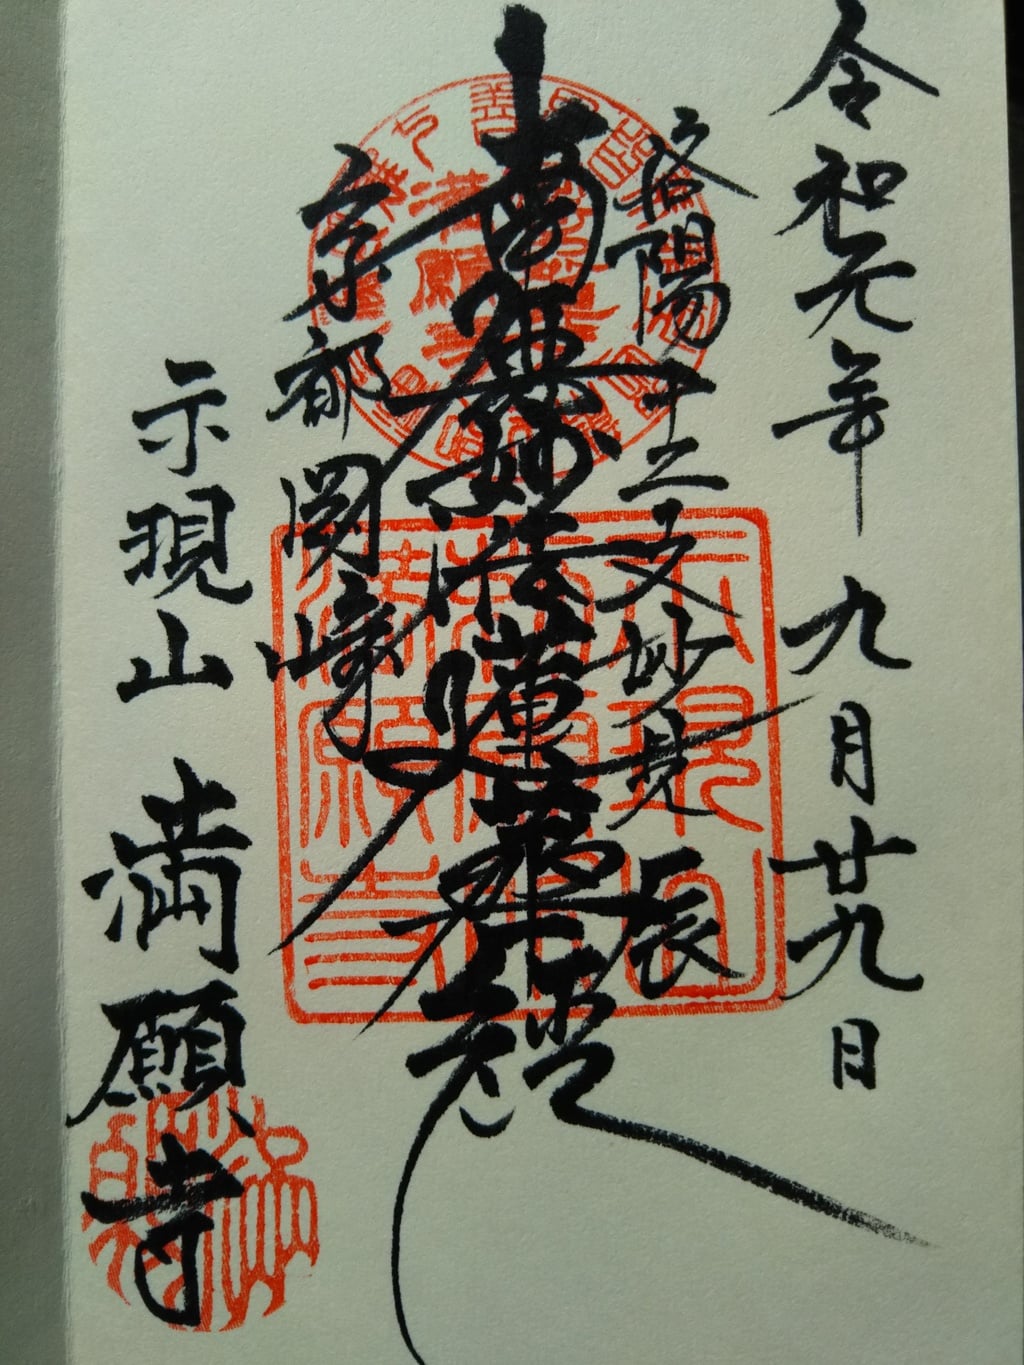 令和元年 九月廿九日
洛陽十二支妙見 辰
南無妙法蓮華経
京都 岡﨑
示現山 満願寺